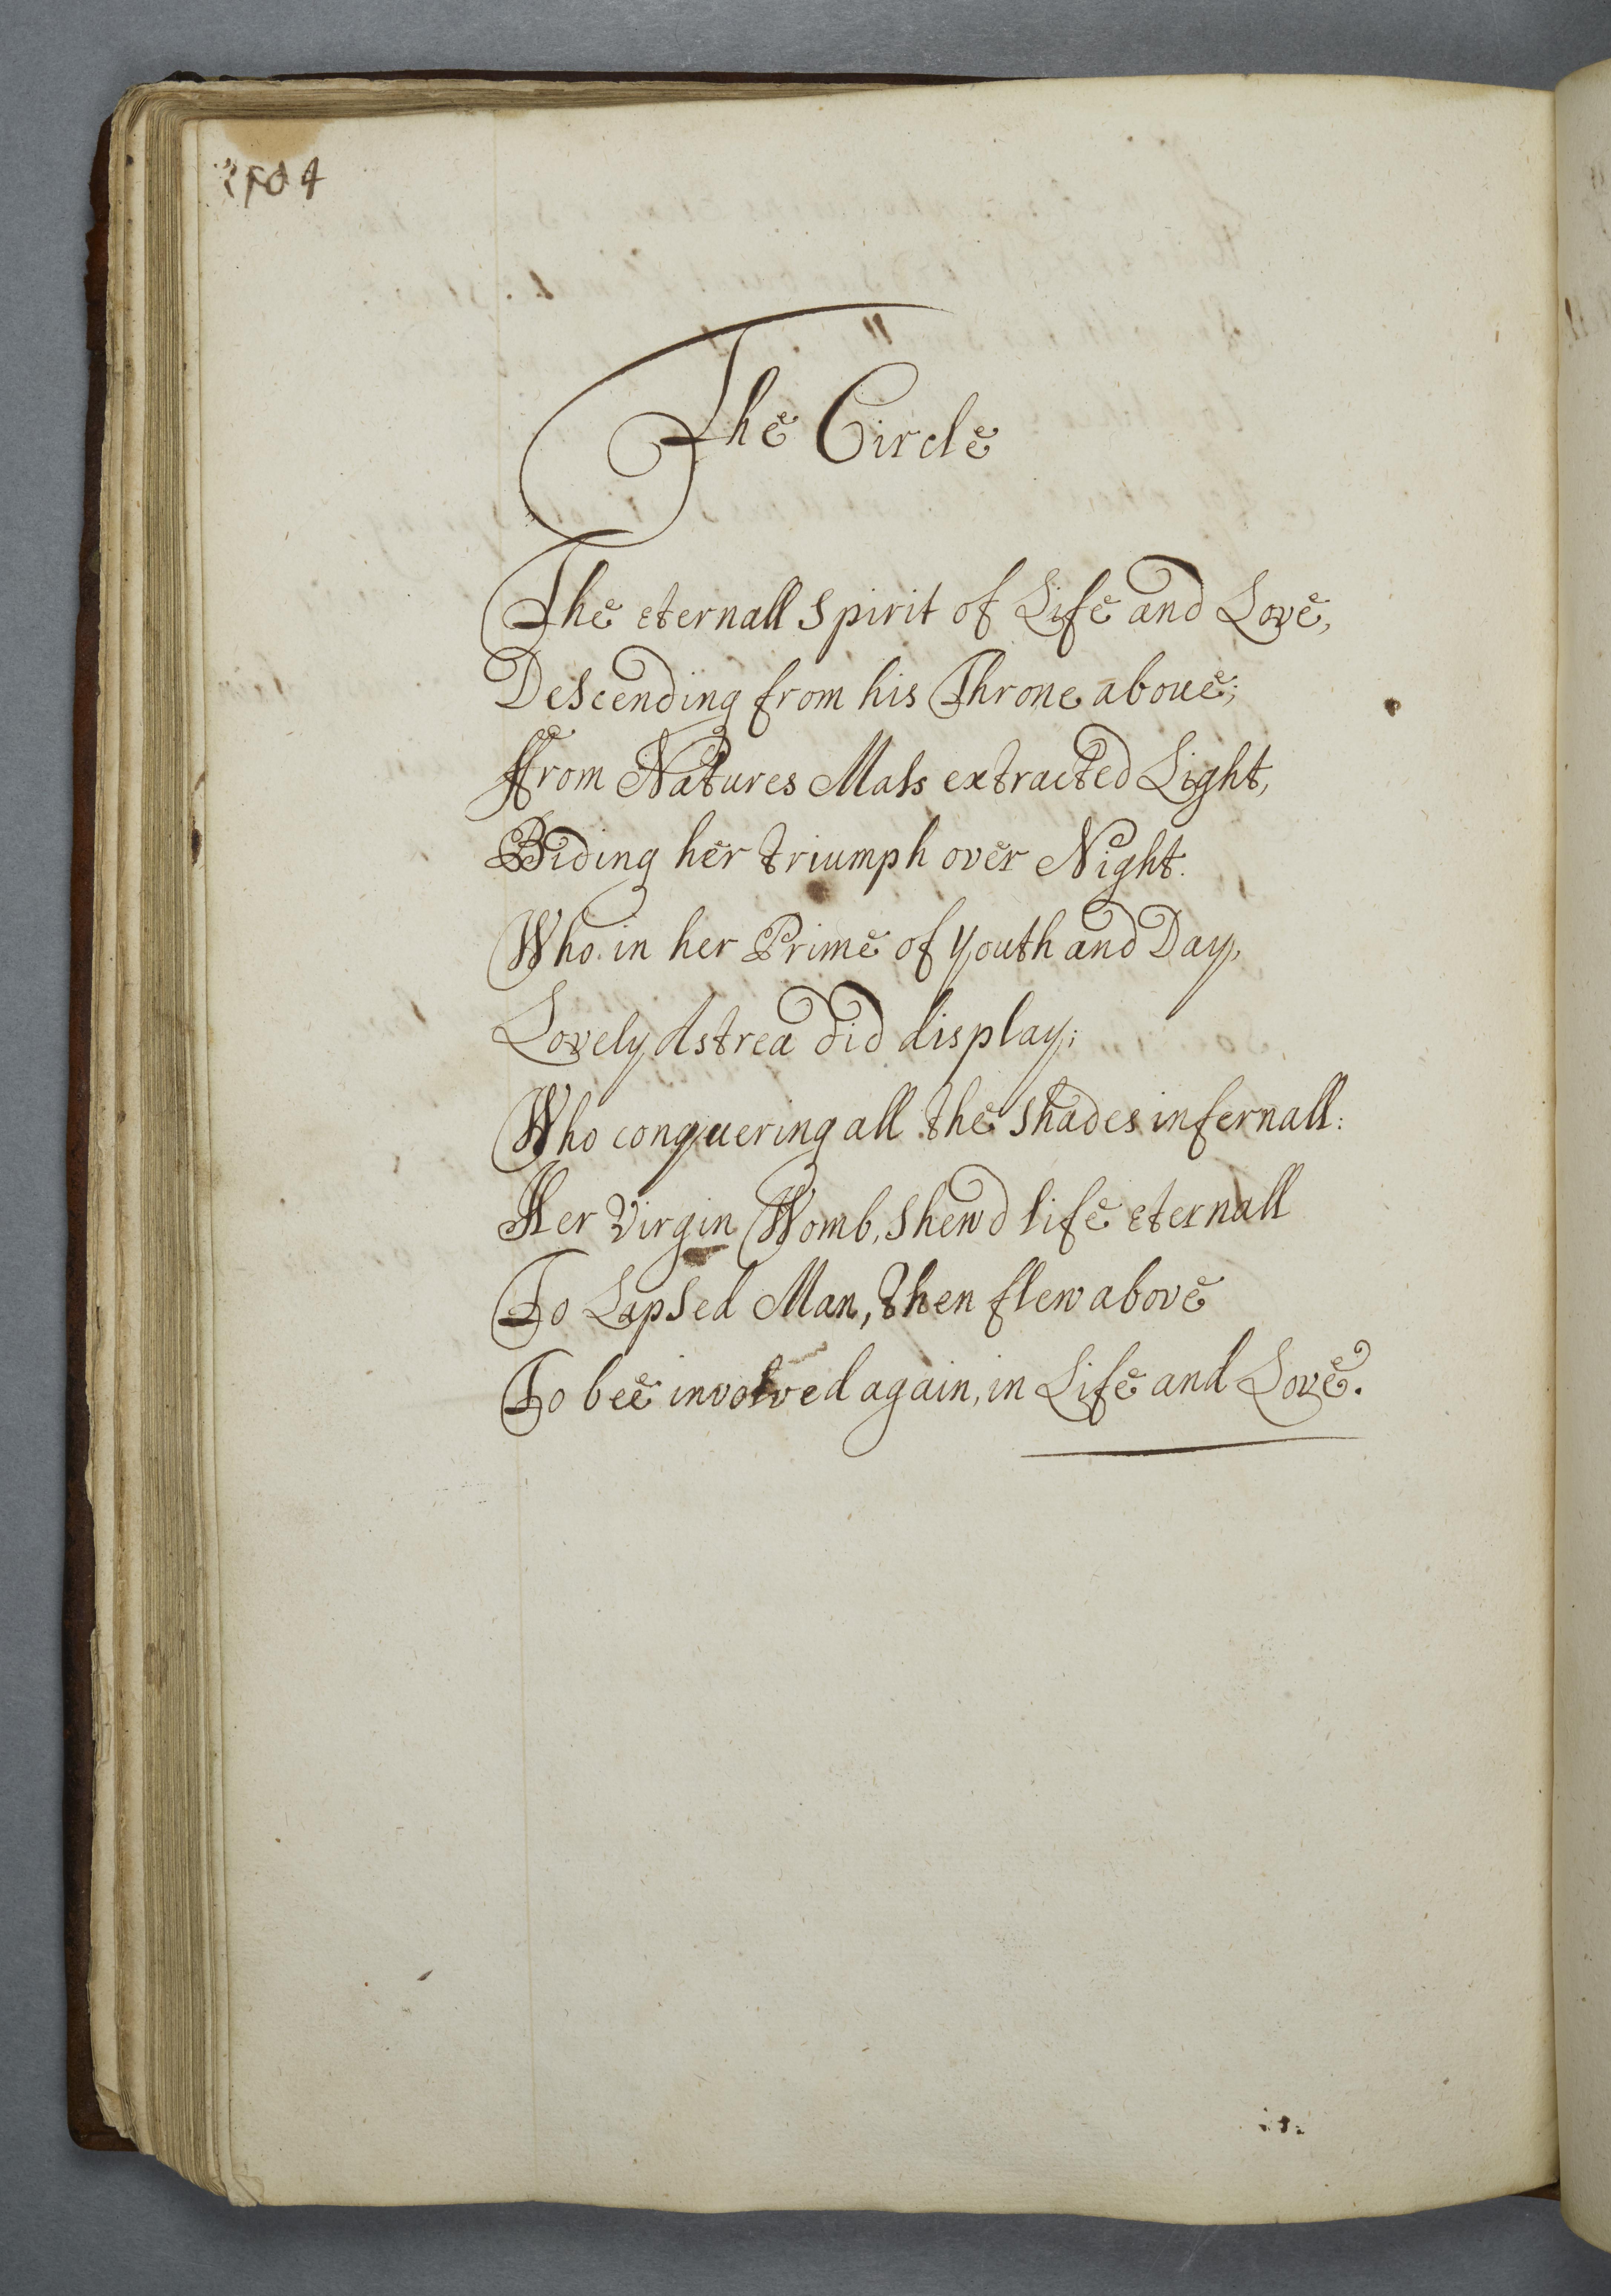 The Circle
The eternall Spirit of Life and Love,
Descending from his Throne above;
ffrom Natures Mass extracted Light,
Biding her triumph over Night.
Who in her Prime of Youth and Day,
Lovely Astrea did display;
Who conquering all the Shades infernall:
Her Virgin Womb, Shew'd life eternall
To Lapsed Man, then flew above
To bee involved again, in Life and Love.